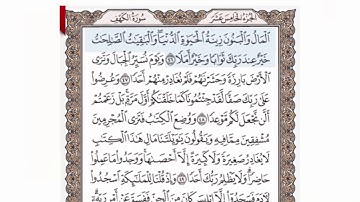 الجزء الخامس عشر سورة الكهف
المال والبنون زينة الحيوة الدنيا والبقيت الصلحت
خير عند ربك ثوابا وخير أملا ٤٦ ويوم نسير الجبال وترى
الأرض بارزة وحشرنهم فلم نغادر منهم أحدا ٤٧ وعرضوا
على ربك صفا لقد جئتمونا كما خلقنكم أول مرة بل زعمتم
ألن نجعل لكم موعدا ٤٨ ووضع الكتب فترى المجرمين
مشفقين مما فيه ويقولون يويلتنا مال هذا الكتب
لا يغادر صغيرة ولا كبيرة إلا أحصىها ووجدوا ما عملوا
حاضرا ولا يظلم ربك أحدا ٤٩ وإذ قلنا للملئكة اسجدوا
لأدم فسجدوا إلا إبليس كان من الجن ففسق عن أمر ربه